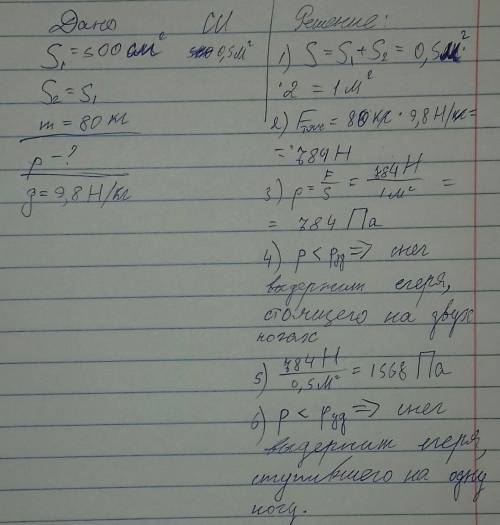 Дано СИ Решение:
S₁ = 500 см² 0,5 м²
S₂ = S₁
m = 80 кг
p - ?
g = 9,8 Н/кг
1) S = S₁ + S₂ = 0,5 м² ·
· 2 = 1 м²
2) Fтяж = 80 кг · 9,8 Н/кг =
= 784 Н
3) p = F/S = 784 Н/1 м² =
= 784 Па
4) p < pуд => снег
выдержит егеря,
стоящего на двух
ногах
5) 784 Н/0,5 м² = 1568 Па
6) p < pуд => снег
выдержит егеря,
ступившего на одну
ногу.